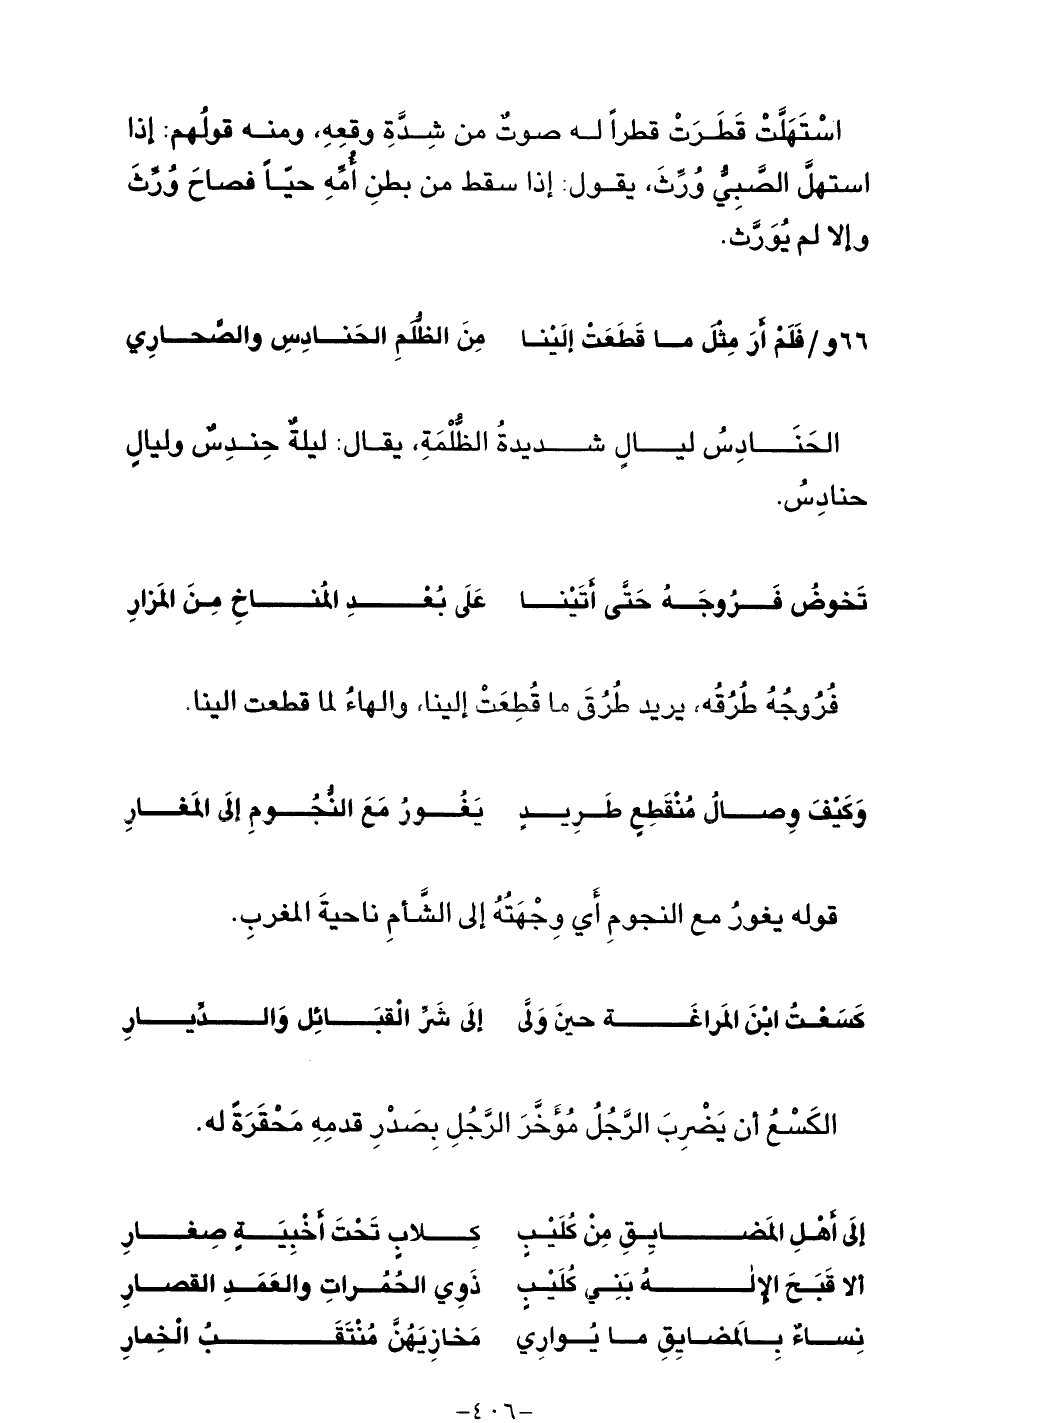 اسْتَهَلَّتْ قَطَرَتْ قطراً له صوتٌ من شِدَّةِ وقعِهِ، ومنه قولُهم: إذا
استهلَّ الصَّبِيُّ وُرِّثَ، يقول: إذا سقط من بطنِ أُمِّهِ حيّاً فصاحَ وُرِّثَ
وإلا لم يُوَرَّث.
٦٦و/فَلَمْ أَرَ مِثْلَ ما قَطَعَتْ إلَيْنا مِنَ الظُّلَمِ الحَنادِسِ والصَّحاري
الحَنَادِسُ ليالٍ شديدةُ الظُّلْمَةِ، يقال: ليلةٌ حِندِسٌ وليالٍ
حنادِسُ.
تَخوضُ فَرُوجَهُ حَتَّى أَتَيْنا عَلَى بُعْدِ المُناخِ مِنَ المَزارِ
فُرُوجُهُ طُرُقُه، يريد طُرُقَ ما قُطِعَتْ إلينا، والهاءُ لما قطعت الينا.
وَكَيْفَ وِصالُ مُنْقَطِعٍ طَرِيدٍ يَغُورُ مَعَ النُّجُومِ إلَى المَغارِ
قوله يغورُ مع النجومِ أَي وِجْهَتُهُ إلى الشَّأمِ ناحيةَ المغربِ.
كَسَعْتُ ابْنَ المَراغَة حينَ وَلَّى إلَى شَرِّ الْقبَائِل وَالدِّيارِ
الكَسْعُ أن يَضْرِبَ الرَّجُلُ مُؤَخَّرَ الرَّجُلِ بِصَدْرِ قدمِهِ مَحْقَرَةً له.
إلَى أَهْلِ المَضايِقِ مِنْ كُلَيْبٍ كِلابٍ تَحْتَ أَخْبِيَةٍ صِغارِ
ألا قَبَحَ الإلٰهُ بَنِي كُلَيْبٍ ذَوِي الحُمُراتِ والعَمَدِ القصارِ
نِساءٌ بِالمَضايِقِ ما يُوارِي مَخازِيَهُنَّ مُنْتَقَبُ الْخِمارِ
-٤٠٦-